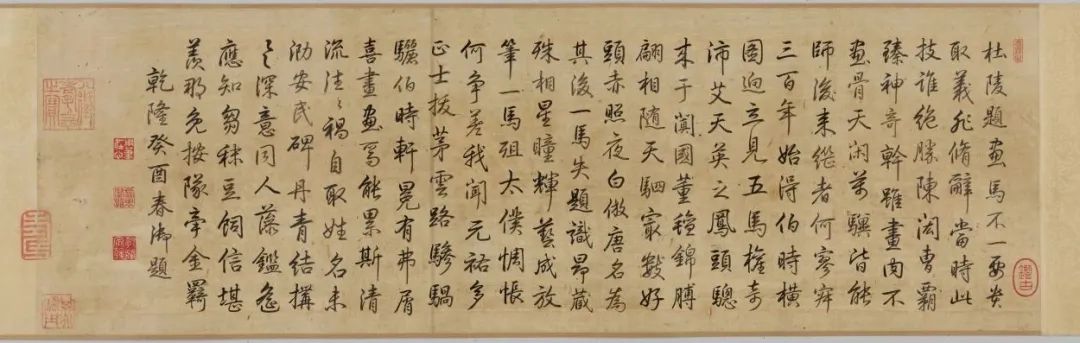 杜陵題畫馬不一要貴
取義非脩辭當時此
技誰絕勝陳閎曹霸
臻神奇幹雖畫肉不
畫骨天閑萬驥皆能
師後來繼者何寥寂
三百年始得伯時橫
圖迥立見五馬權奇
沛艾天英之鳳頭驄
來于闐國董氊錦膊
相隨天駟最數好
頭赤照夜白倣唐名為
其後一馬失題識昂藏
殊相星瞳輝藝成放
筆一馬殂太僕惆悵
何爭差我聞元祐多
正士拔茅雲路驂騧
驪伯時軒冕有弗屑
喜畫畫馬能累斯清
流法〻禍自取姓名未
泐安民碑丹青結搆
深意同人藻鑑
應知芻秣豆飼信堪
羨那免按隊牽金羈
乾隆癸酉春御題